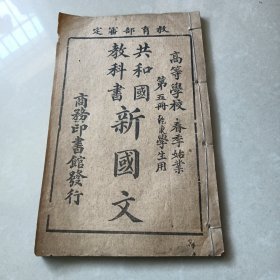 教育部審定
高等學校 春季始業
第五冊 學生用
共和國
教科書
新國文
商務印書館發行